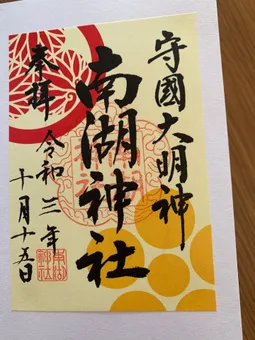 守國大明神
南湖神社
奉拝
令和三年
十月十五日